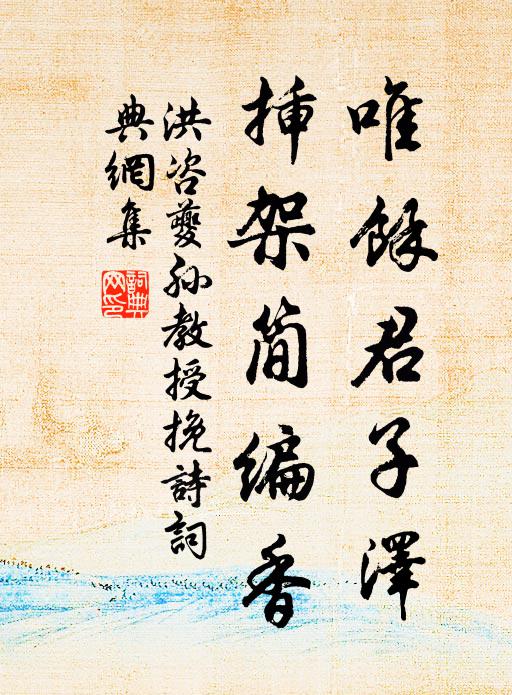 唯餘君子澤
挿架简编香
洪咨夔孙教授挽詩詞
典網集
詞典网印